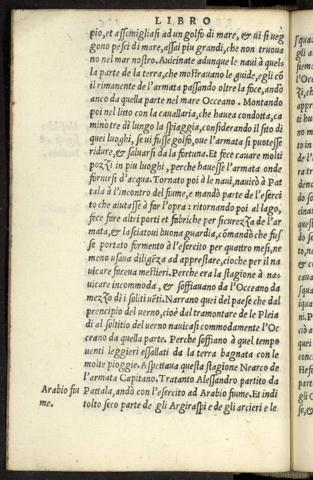 LIBRO
pio, et assomigliasi ad un golfo di mare, & ui si ueg
gono pesci di mare, assai piu grandi, che non truoua
no nel mar nostro. Auicinate adunque le naui à quel
la parte de la terra, che mostrauano le guide, egli cō
il rimanente de l'armata passando oltre la foce, andò
anco da quella parte nel mare Oceano. Montando
poi nel litto con la cauallaria, che hauea condotta, ca
minò tre dì lungo la spiaggia, considerando il sito di
quei luoghi, se ui fusse golfo, oue l'armata si puotesse
ridure, & saluarsi da la fortuna. Et fece cauare molti
pozzi in piu luoghi, perche hauesse l'armata onde
fornirsi d'acqua. Tornato poi à le naui, nauicò à Pat
tala à l'incontro del fiume, e mandò parte de l'eserci
to che aiutasse à far l'opra: ritornando poi al lago,
fece fare altri porti et fabriche per sicurezza de l'ar
mata, & la sciatoui buona guardia, comandò che fus
se portato formento à l'esercito per quattro mesi, ne
meno usaua diligēza ad apprestare, cioche per il na
uicare faceua mestieri. Perche era la stagione à na-
uicare incommoda, & soffiauano da l'Oceano da
mezzo dì i soliti uēti. Narrano quei del paese che dal
prencipio del uerno, cioè dal tramontare de le Pleia
di al solstitio del uerno nauicasi commodamente l'Oc
ceano da quella parte. Perche soffiano à quel tempo
uenti leggieri essallati da la terra bagnata con le
molte pioggie. Aspettaua questa stagione Nearco de
l'armata Capitano. Tratanto Alessandro partito da
Arabio fiu Pattala, andò con l'esercito ad Arabio fiume. Et indi
me. tolto seco parte de gli Argiraspi e de gli arcieri e le